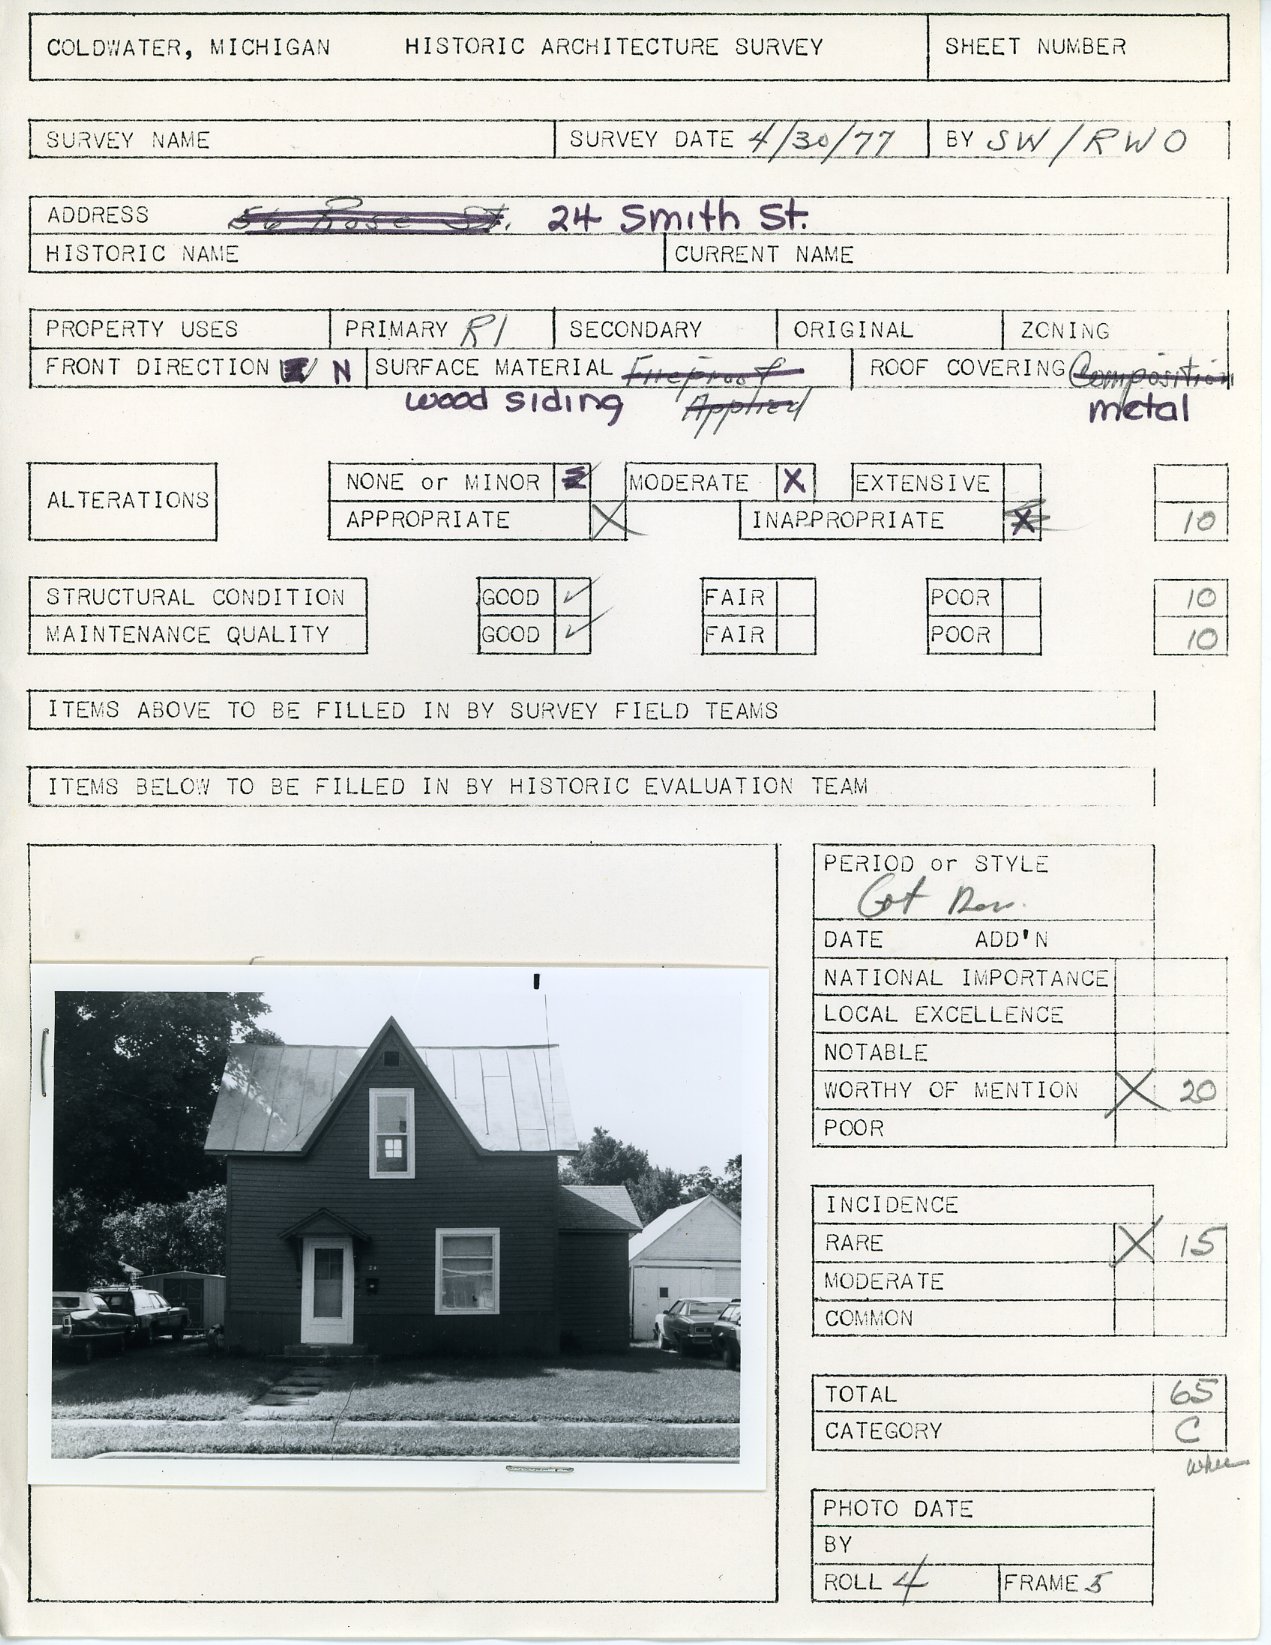 COLDWATER, MICHIGAN HISTORIC ARCHITECTURE SURVEY SHEET NUMBER
SURVEY NAME SURVEY DATE 4/30/77 BY SW/RWO
ADDRESS 56 Rose St. 24 Smith St.
HISTORIC NAME CURRENT NAME
PROPERTY USES PRIMARY R1 SECONDARY ORIGINAL ZONING
FRONT DIRECTION N SURFACE MATERIAL Fireproof ROOF COVERING Composition
wood siding Applied metal
ALTERATIONS NONE or MINOR MODERATE X EXTENSIVE
APPROPRIATE X INAPPROPRIATE X 10
STRUCTURAL CONDITION GOOD ✓ FAIR POOR 10
MAINTENANCE QUALITY GOOD ✓ FAIR POOR 10
ITEMS ABOVE TO BE FILLED IN BY SURVEY FIELD TEAMS
ITEMS BELOW TO BE FILLED IN BY HISTORIC EVALUATION TEAM
PERIOD or STYLE
Got Rev.
DATE ADD'N
NATIONAL IMPORTANCE
LOCAL EXCELLENCE
NOTABLE
WORTHY OF MENTION X 20
POOR
INCIDENCE
RARE X 15
MODERATE
COMMON
TOTAL 65
CATEGORY C
PHOTO DATE
BY
ROLL 4 FRAME 5
24